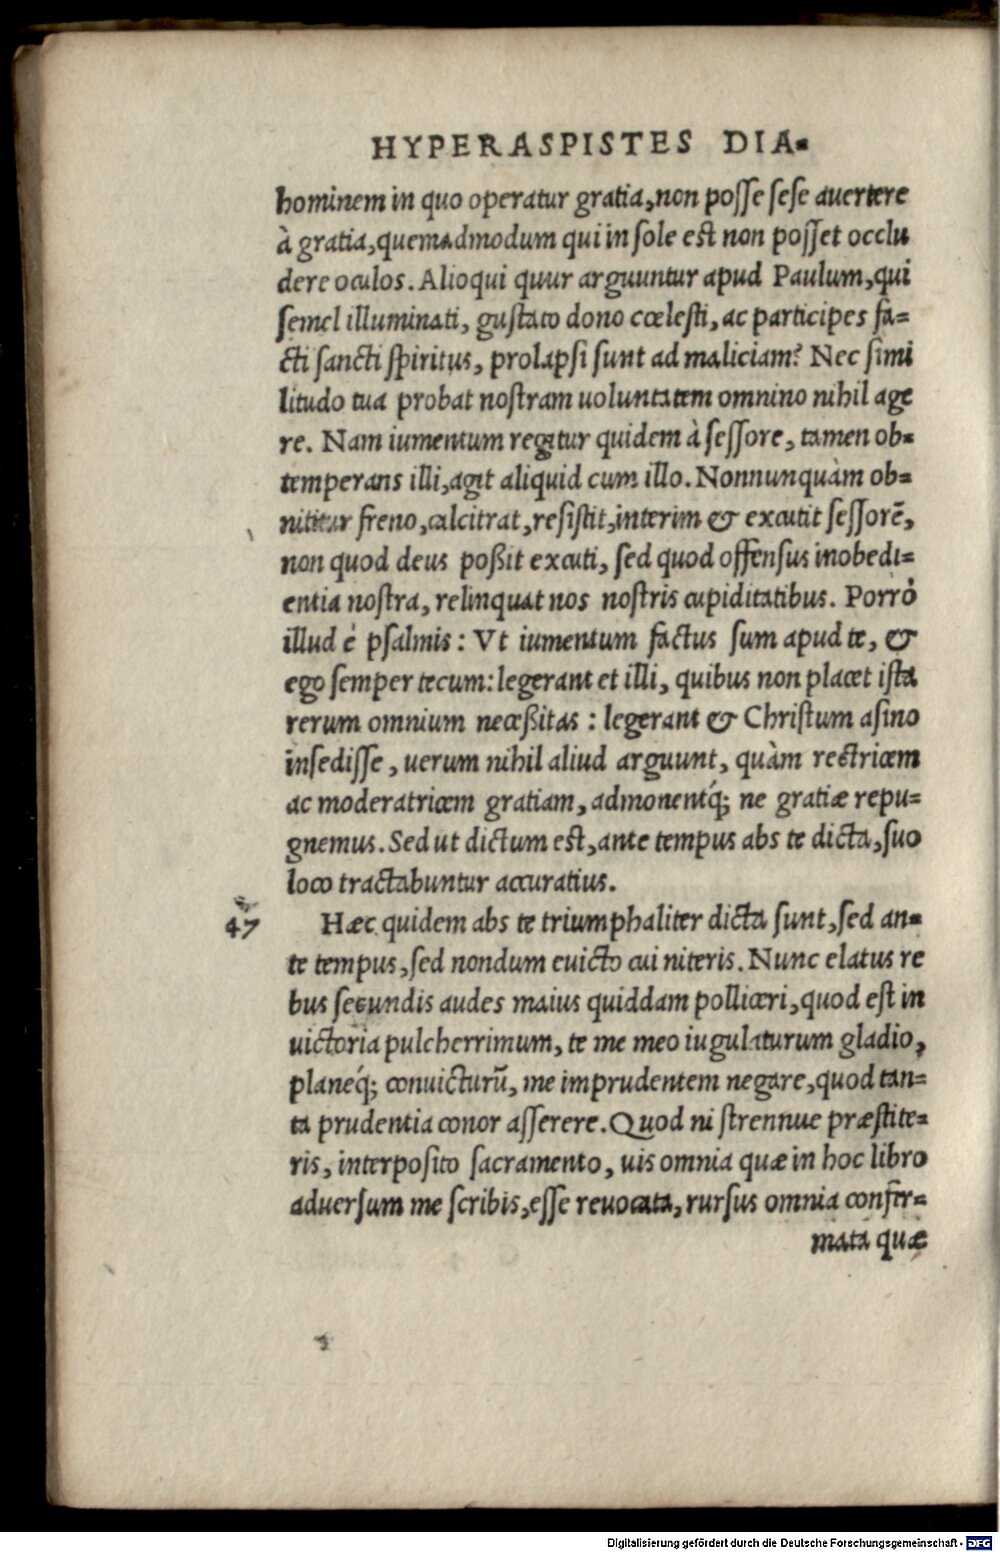 HYPERASPISTES DIA-
hominem in quo operatur gratia, non posse sese auertere
à gratia, quemadmodum qui in sole est non posset occlu
dere oculos. Alioqui quur arguuntur apud Paulum, qui
semel illuminati, gustato dono cœlesti, ac participes fa-
cti sancti spiritus, prolapsi sunt ad maliciam? Nec simi
litudo tua probat nostram uoluntatem omnino nihil age
re. Nam iumentum regitur quidem à sessore, tamen ob-
temperans illi, agit aliquid cum illo. Nonnunquàm ob-
nititur freno, calcitrat, resistit, interim & excutit sessorē,
non quod deus poßit excuti, sed quod offensus inobedi-
entia nostra, relinquat nos nostris cupiditatibus. Porrò
illud è psalmis: Vt iumentum factus sum apud te, &
ego semper tecum: legerant et illi, quibus non placet ista
rerum omnium neceßitas: legerant & Christum asino
insedisse, uerum nihil aliud arguunt, quàm rectricem
ac moderatricem gratiam, admonentq́; ne gratiæ repu-
gnemus. Sed ut dictum est, ante tempus abs te dicta, suo
loco tractabuntur accuratius.
47 Hæc quidem abs te triumphaliter dicta sunt, sed an-
te tempus, sed nondum euicto cui niteris. Nunc elatus re
bus secundis audes maius quiddam polliceri, quod est in
uictoria pulcherrimum, te me meo iugulaturum gladio,
planeq́; conuicturū, me imprudentem negare, quod tan-
ta prudentia conor asserere. Quod ni strennue præstite-
ris, interposito sacramento, uis omnia quæ in hoc libro
aduersum me scribis, esse reuocata, rursus omnia confir-
mata quæ
Digitalisierung gefördert durch die Deutsche Forschungsgemeinschaft - DFG